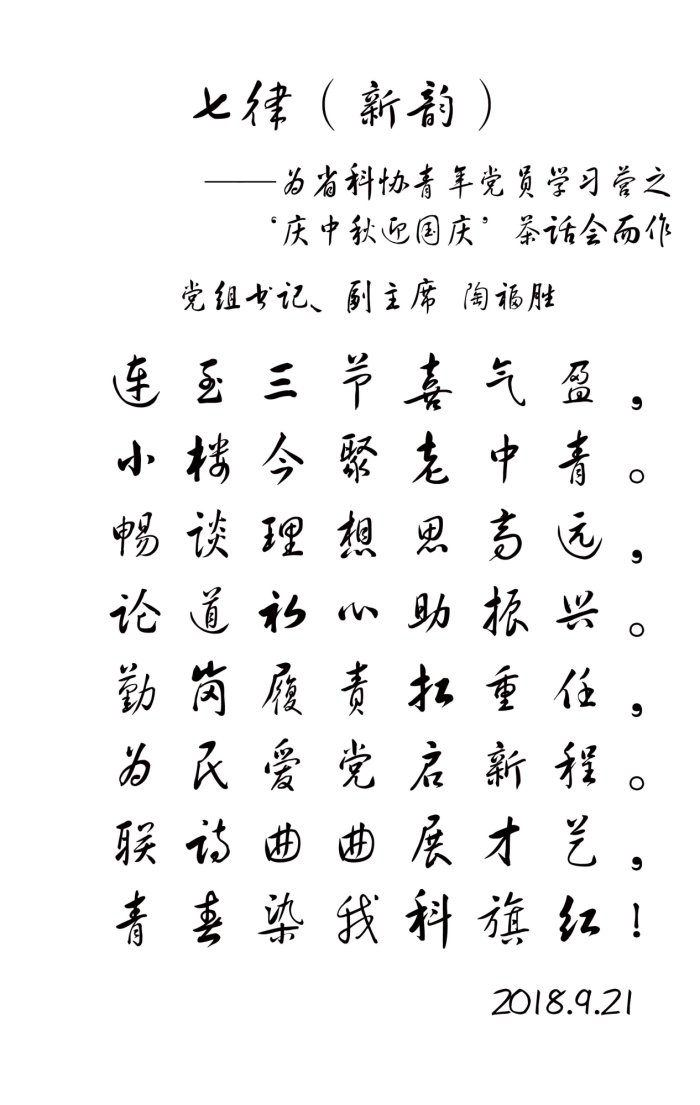 七律（新韵）
——为省科协青年党员学习营之
‘庆中秋迎国庆’茶话会而作
党组书记、副主席 陶福胜
连至三节喜气盈，
小楼今聚老中青。
畅谈理想思高远，
论道初心助振兴。
勤岗履责扛重任，
为民爱党启新程。
联诗曲曲展才艺，
青春染我科旗红！
2018.9.21